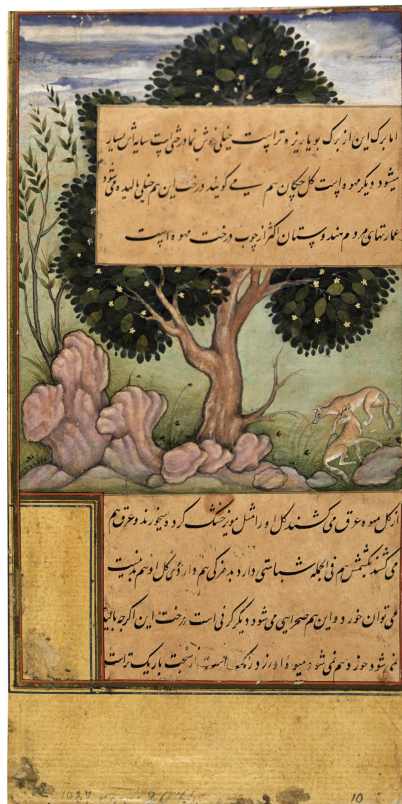 اما برک این از برک بویا ریز و تراست خیلی خوش نما درختی است سایه اش بسیار
میشود دیگر مهوه است کل چکان هم می گویند درخت این هم خیلی بالیده می شود
عمارتهای مردم هندوستان اکثر از چوب درخت مهوه است
از کل مهوه عرق می کشند کل او را مثل مویز خشک کرده میخورند و عرق هم
می کشند کشمش هم فی الجمله شباهتی دارد بد مزکی هم دارد کل او هم بد نیست
می توان خورد و این هم صحرایی می شود دیگر کرنی است درخت این اکرچه بالیده
نمی شود خورد هم نمی شود میوه او زرد از سنجد باریک تر است
1027
10